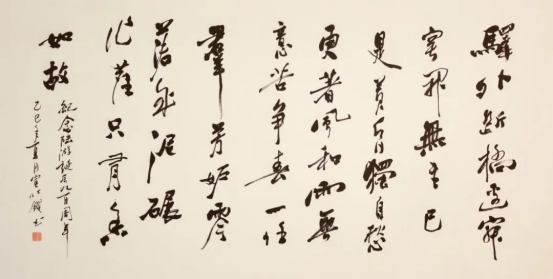 驛外斷橋邊寂
寞開無主已
是黃昏獨自愁
更著風和雨無
意苦爭春一任
羣芳妒零
落成泥碾
作塵只有香
如故
紀念陆游誕辰九百周年
乙巳夏月